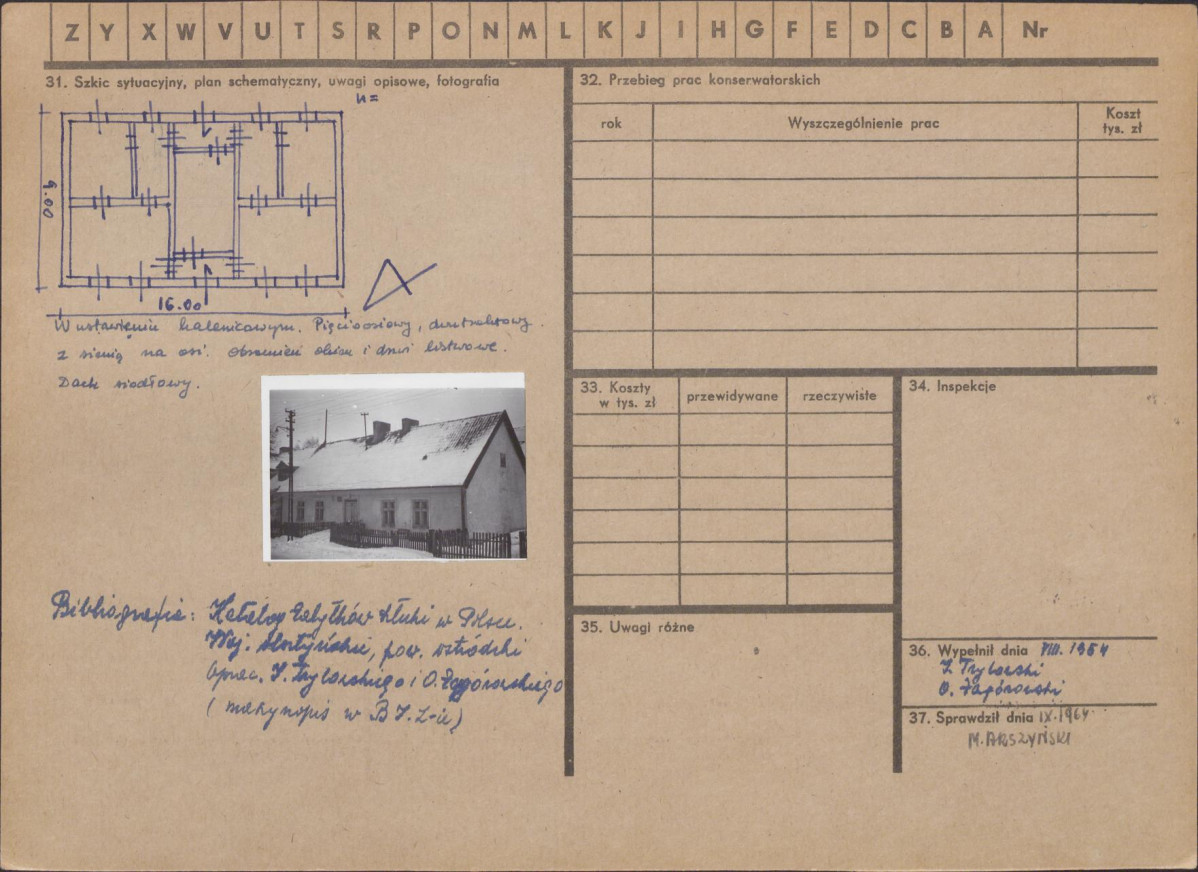 Z Y X W V U T S R P O N M L K J I H G F E D C B A Nr
31. Szkic sytuacyjny, plan schematyczny, uwagi opisowe, fotografia
9.00
16.00
W ustawieniu kalenicowym. Pięcioosiowy, dwutraktowy.
z sienią na osi. Obramień okien i drzwi listwowe.
Dach siodłowy.
Bibliografia: Katalog Zabytków Sztuki w Polsce.
Woj. olsztyńskie, pow. ostródzki
oprac. J. Trylarskiego i O. Zagórowskiego
(maszynopis w B I.S-ie)
32. Przebieg prac konserwatorskich
rok Wyszczególnienie prac Koszt tys. zł
33. Koszty w tys. zł przewidywane rzeczywiste
34. Inspekcje
35. Uwagi różne
36. Wypełnił dnia VIII. 1964
O. Zagórowski
37. Sprawdził dnia IX.1964
M. ARSZYŃSKI